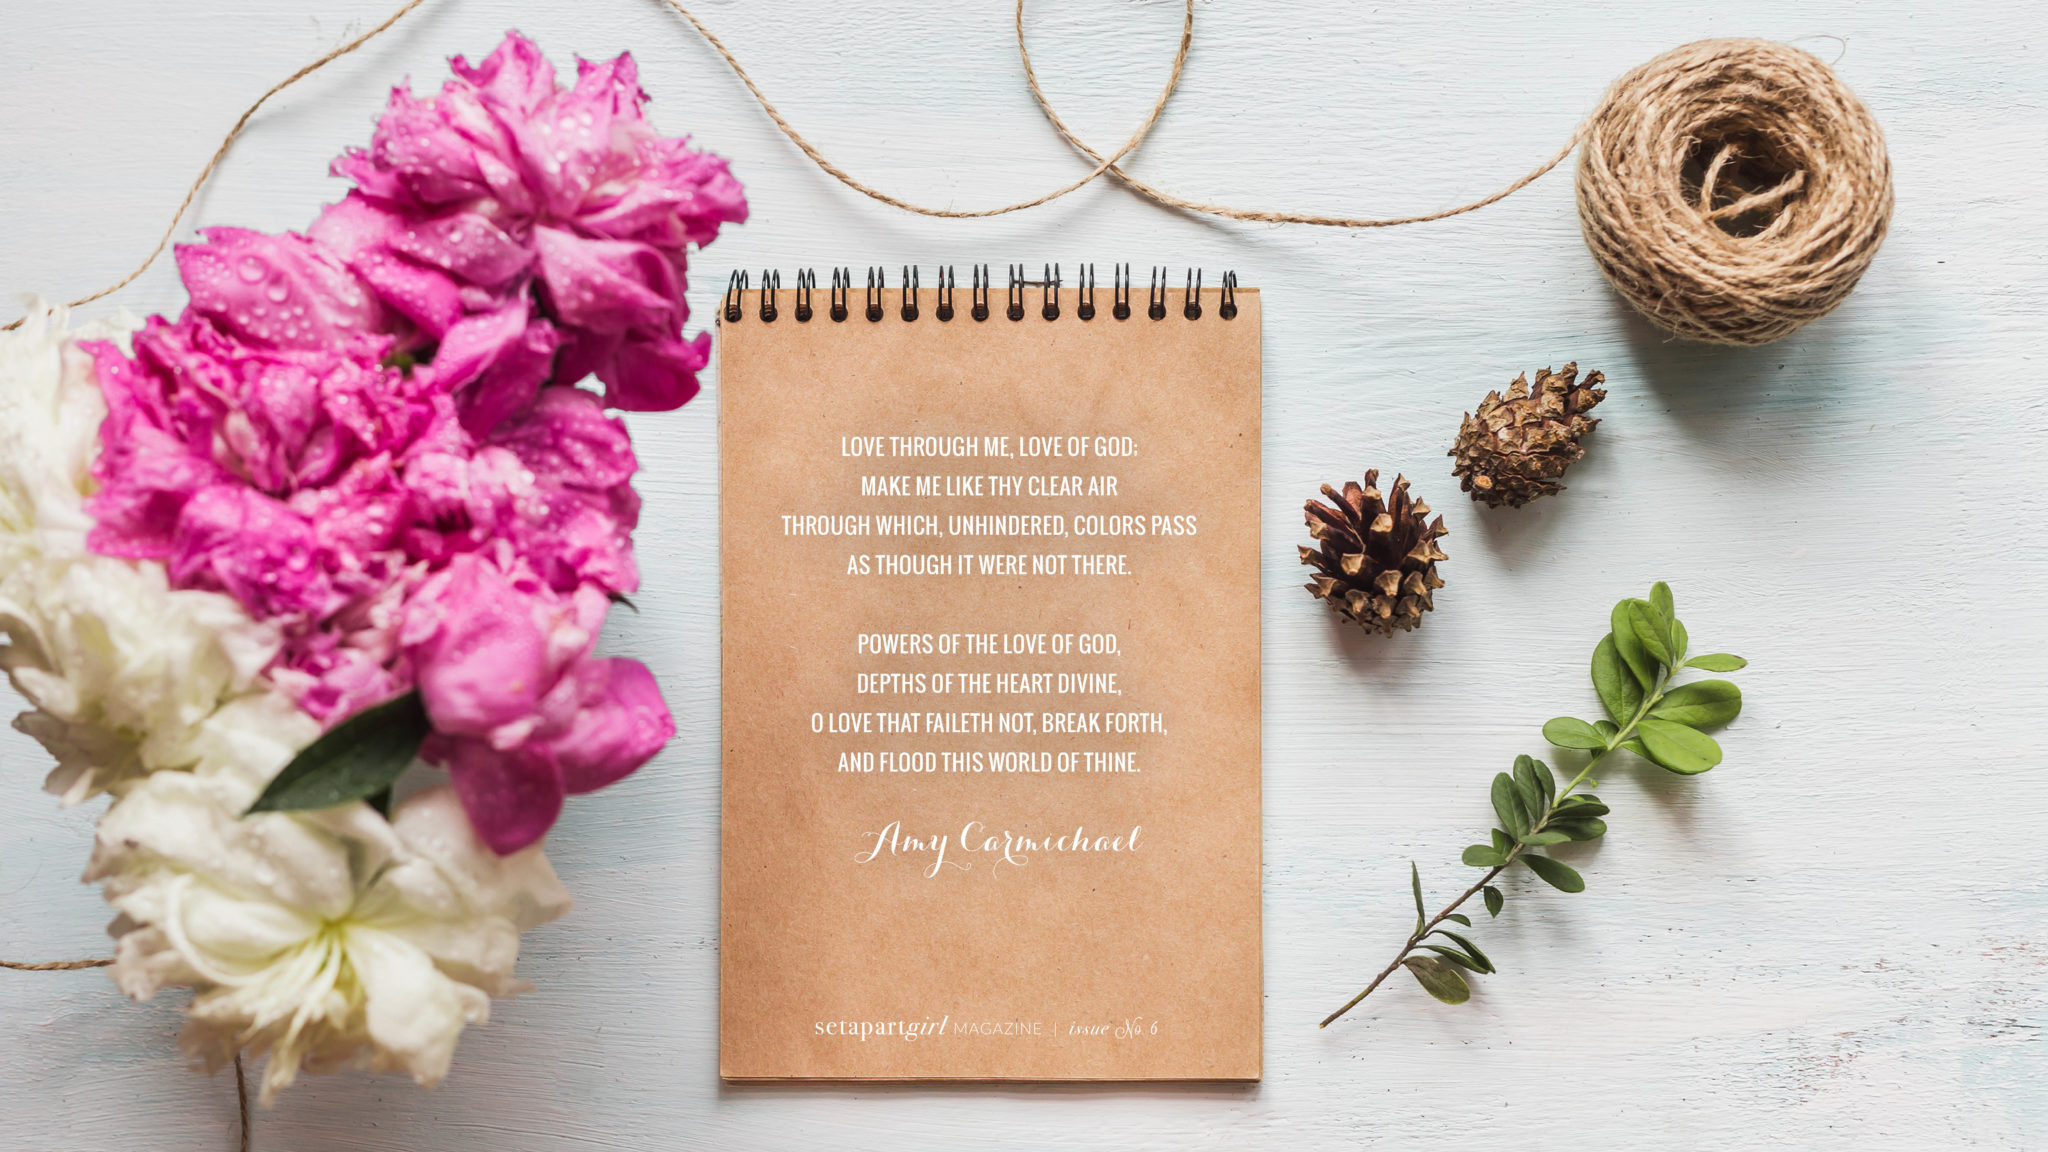 LOVE THROUGH ME, LOVE OF GOD;
MAKE ME LIKE THY CLEAR AIR
THROUGH WHICH, UNHINDERED, COLORS PASS
AS THOUGH IT WERE NOT THERE.
POWERS OF THE LOVE OF GOD,
DEPTHS OF THE HEART DIVINE,
O LOVE THAT FAILETH NOT, BREAK FORTH,
AND FLOOD THIS WORLD OF THINE.
Amy Carmichael
setapartgirl MAGAZINE | issue No. 6